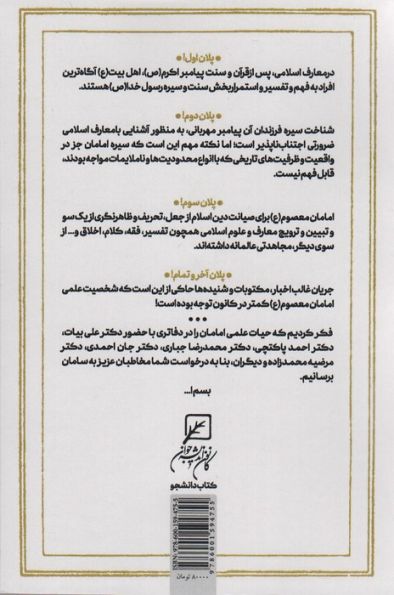 پلان اول!
در معارف اسلامی، پس از قرآن و سنت پیامبر اکرم(ص)، اهل بیت(ع) آگاه‌ترین
افراد به فهم و تفسیر و استمراربخش سنت و سیره رسول خدا(ص) هستند.
پلان دوم!
شناخت سیره فرزندان آن پیامبر مهربانی، به منظور آشنایی با معارف اسلامی
ضرورتی اجتناب‌ناپذیر است؛ اما نکته مهم این است که سیره امامان جز در
واقعیت و ظرفیت‌های تاریخی که با انواع محدودیت‌ها و ناملایمات مواجه بودند،
قابل فهم نیست.
پلان سوم!
امامان معصوم(ع) برای صیانت دین اسلام از جعل، تحریف و ظاهرنگری از یک سو
و تبیین و ترویج معارف و علوم اسلامی همچون تفسیر، فقه، کلام، اخلاق و... از
سوی دیگر، مجاهدتی عالمانه داشته‌اند.
پلان آخر و تمام!
جریان غالب اخبار، مکتوبات و شنیده‌ها حاکی از این است که شخصیت علمی
امامان معصوم(ع) کمتر در کانون توجه بوده است!
•••
فکر کردیم که حیات علمی امامان را در دفاتری با حضور دکتر علی بیات،
دکتر احمد پاکتچی، دکتر محمدرضا جباری، دکتر جان احمدی، دکتر
مرضیه محمدزاده و دیگران، بنا به درخواست شما مخاطبان عزیز به سامان
برسانیم.
بسم ا...
کانون اندیشه جوان
کتاب دانشجو
ISBN: 978-600-159-475-5
9786001594755
۸۰۰۰۰ تومان